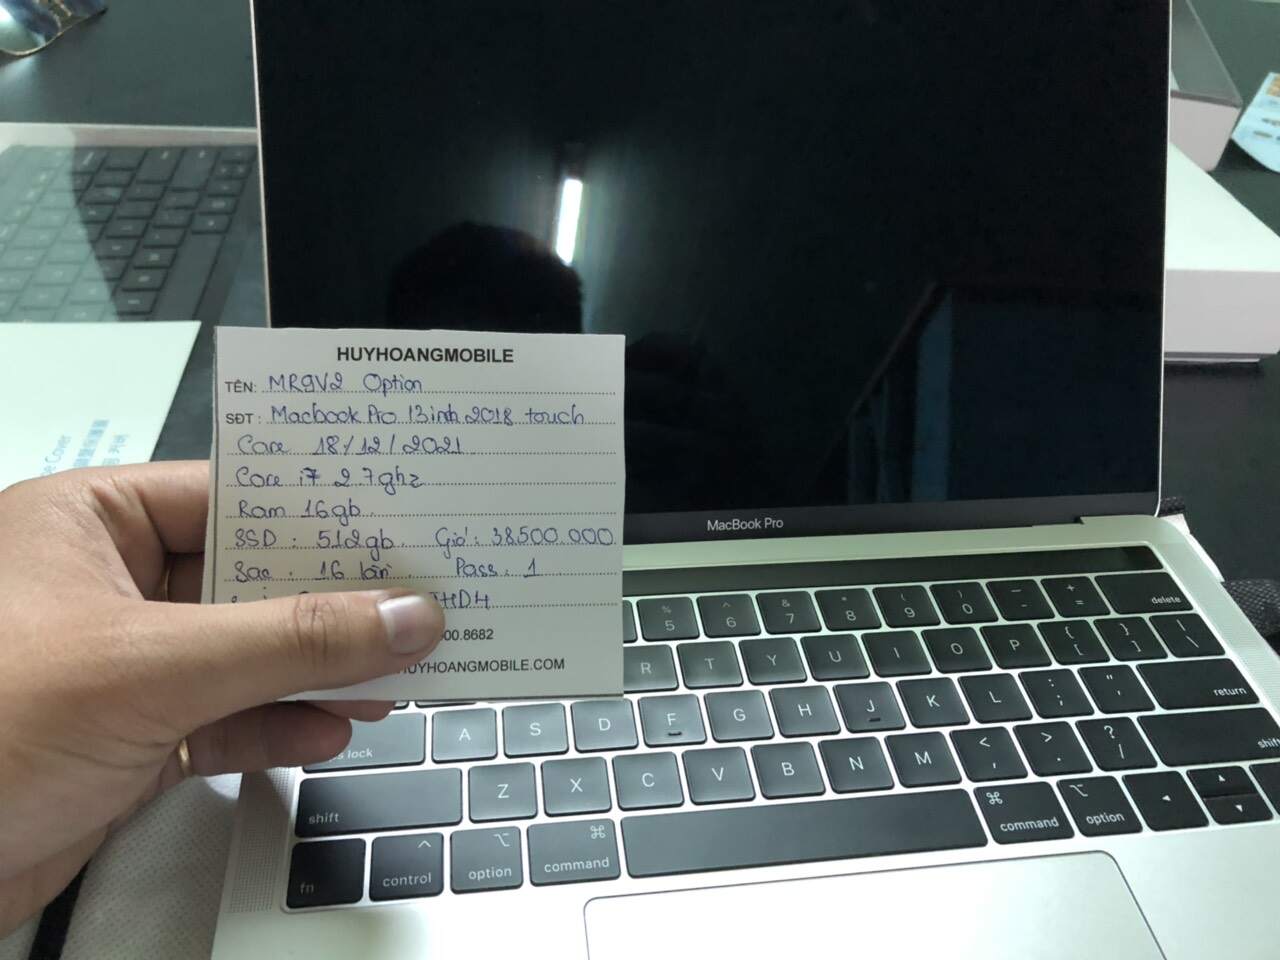 HUYHOANGMOBILE
TÊN: MR9V2 Option
SĐT: Macbook Pro 13inh 2018 touch
Care 18/12/2021
Core i7 2.7ghz
Ram 16gb
SSD: 512gb. Giá: 38500.000
Sạc: 16 lần. Pass: 1
00.8682
HUYHOANGMOBILE.COM
MacBook Pro
% 5 ^ 6 & 7 * 8 ( 9 ) 0 — - + = delete
R T Y U I O P { [ } ] | \
lock A S D F G H J K L : ; " ' return
shift Z X C V B N M < , > . ? / shift
fn ^ control ⌥ option ⌘ command ⌘ command ⌥ option ◂ ▴ ▾
Cover